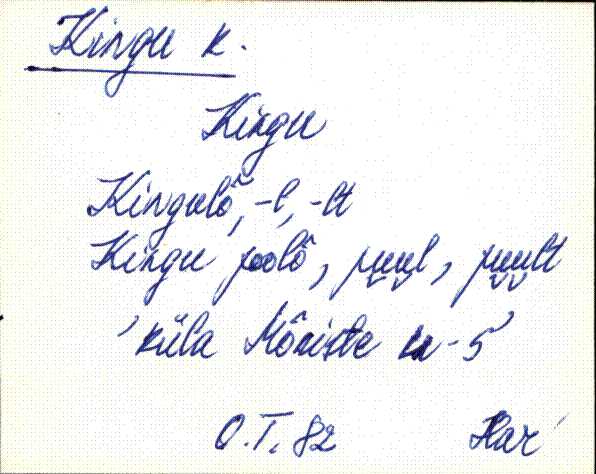 Kingu k.
Kingu
Kingulõ, -l, -lt
Kingu poolõ, puu̬l, puu̬lt
'küla Mõniste n-s'
O.T. 82 Har